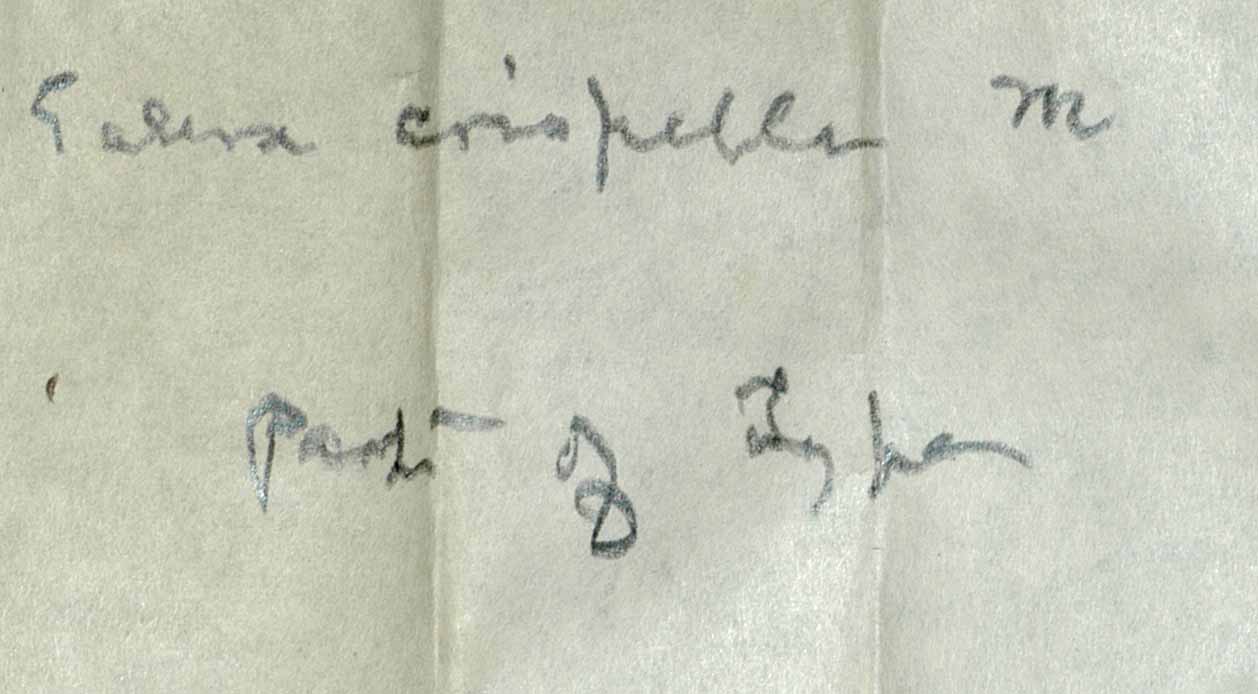 Galera crispella M
Part of Type